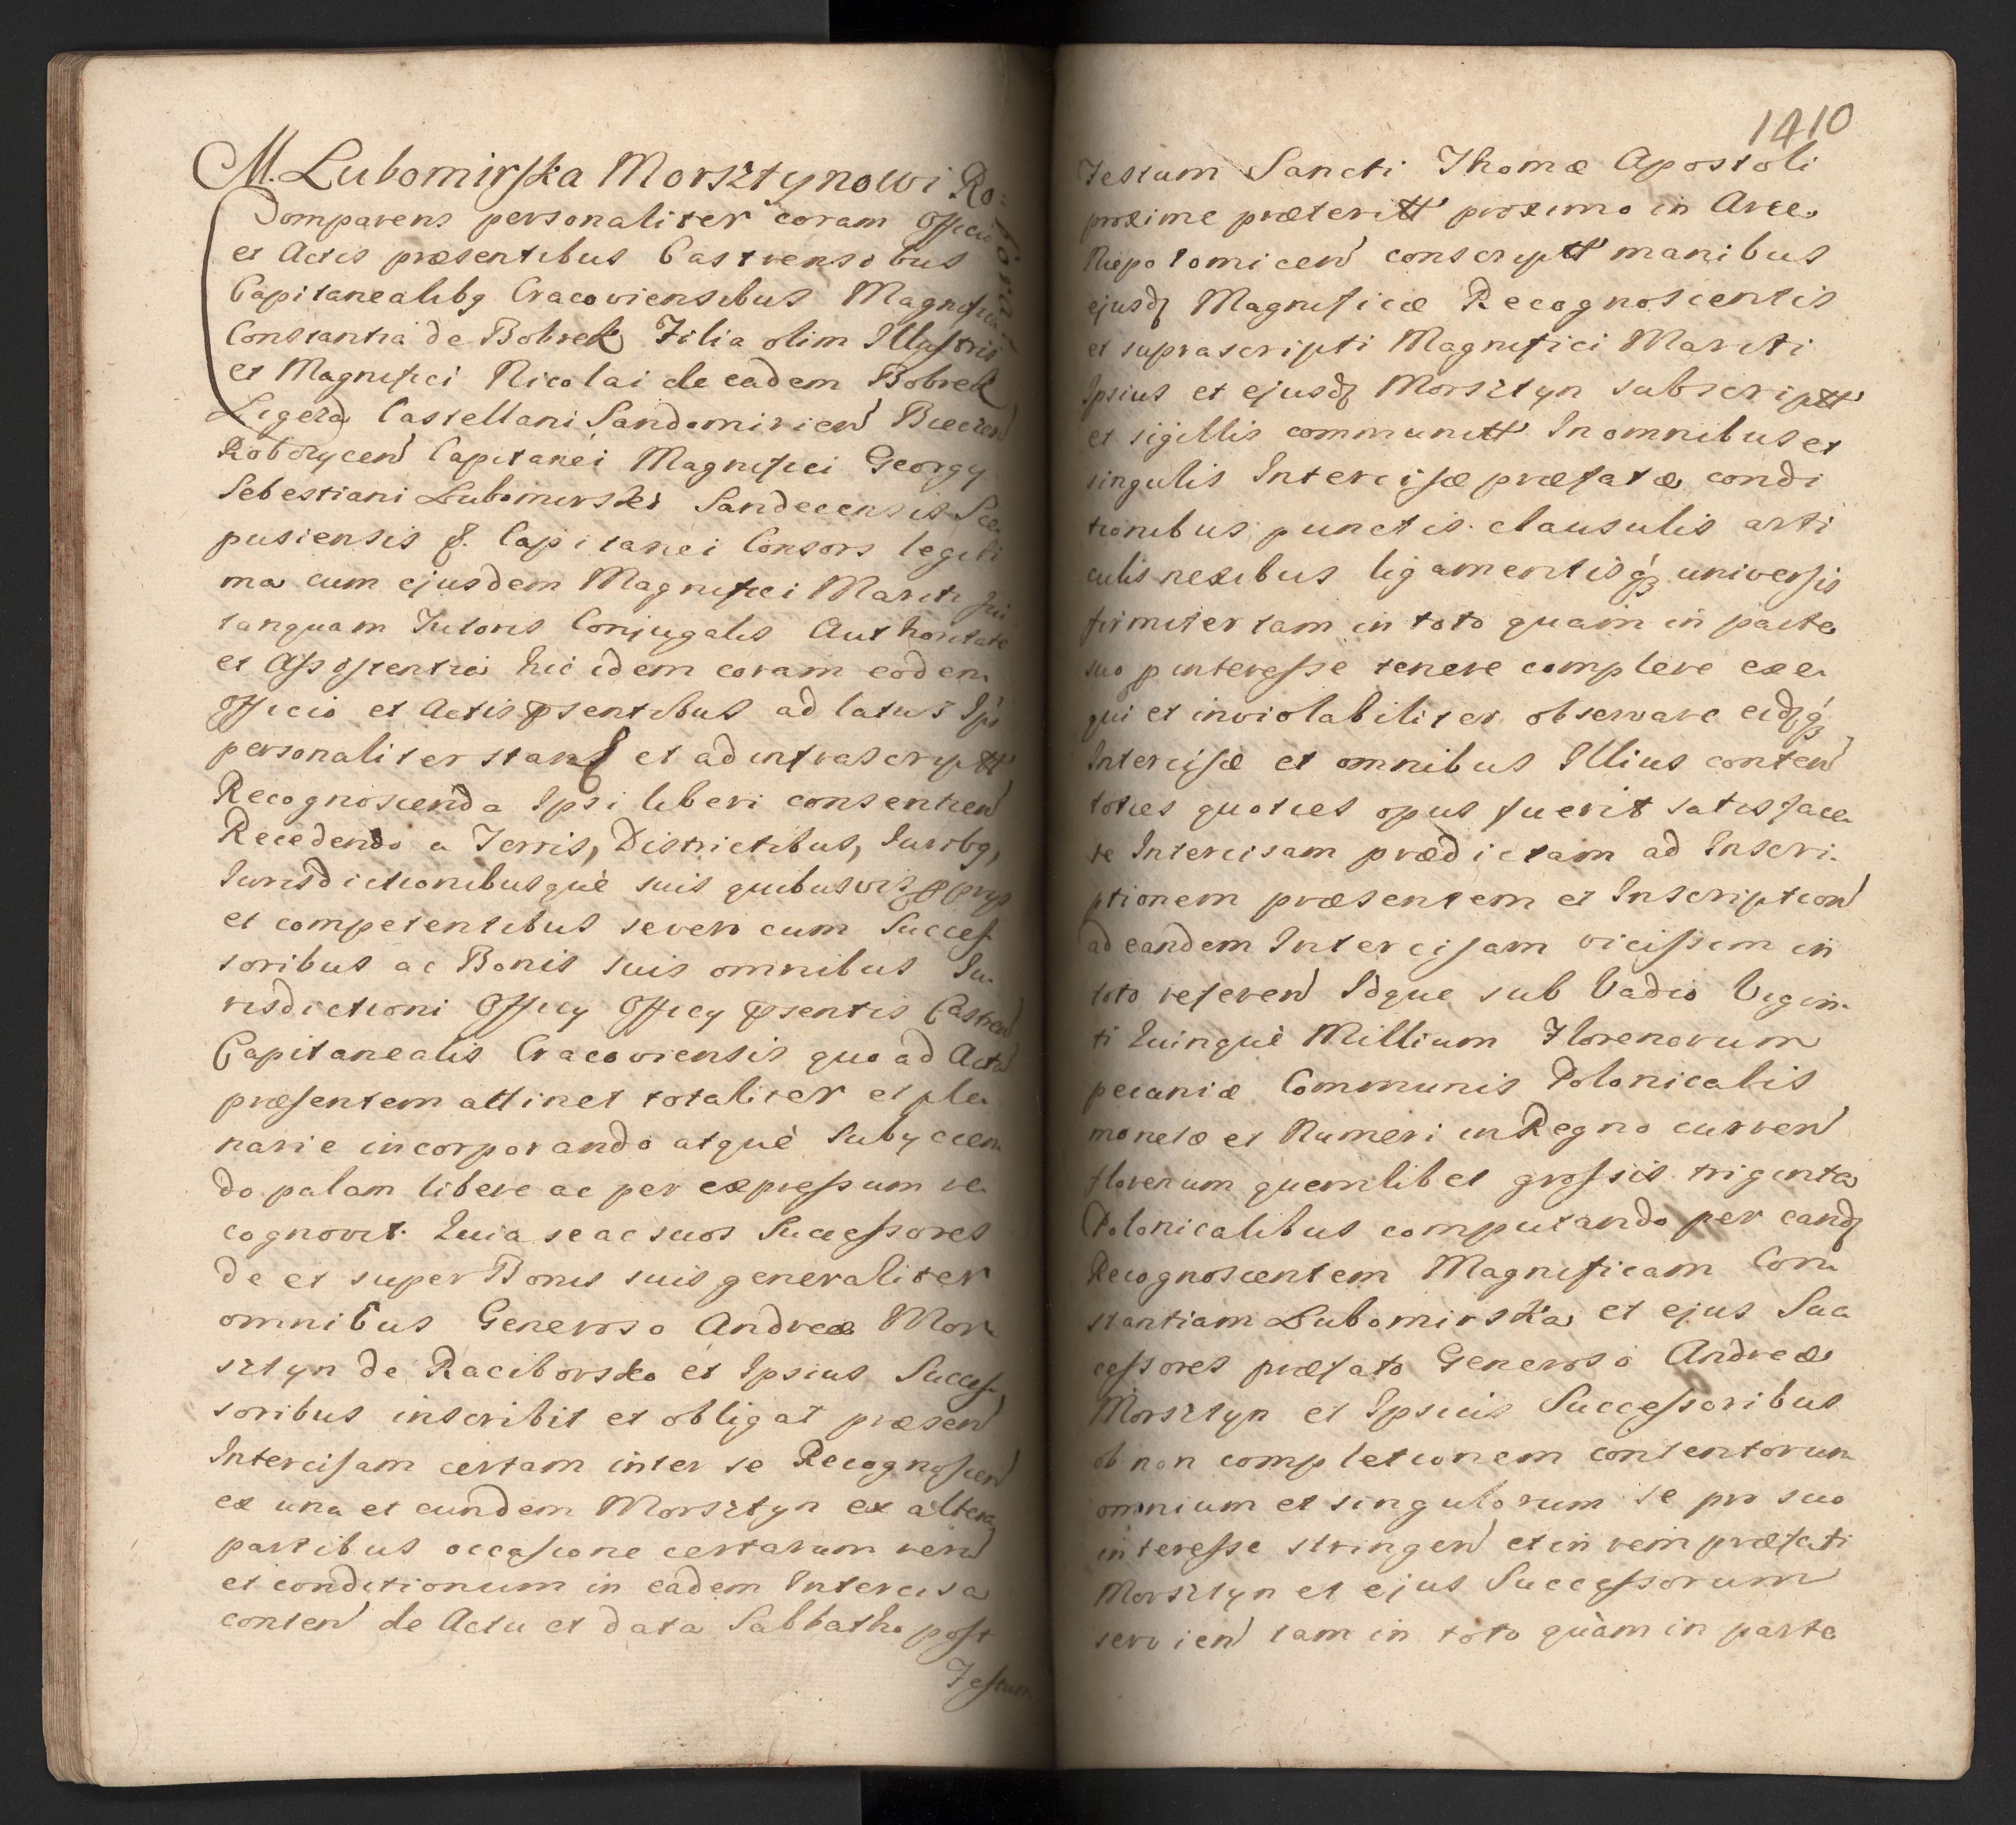 M. Lubomirska Morsztynowi Ro=
borat
Comparens personaliter coram Officio
et Actis præsentibus Castrensibus
Capitanealibq Cracoviensibus Magnifica
Constantia de Bobrek Filia olim Illustris
et Magnifici Nicolai de eadem Bobrek
Ligeza Castellani Sandomirien Biecen
Robczycen Capitanei Magnifici Georgy
Sebestiani Lubomirski Sandecensis Sce
pusiensis &. Capitanei Consors legiti
ma cum ejusdem Magnifici Mariti sui
tanquam Tutoris Conjugalis Authoritate
et Assistentia hic idem coram eodem
Officio et Actis psentibus ad latus Ips
personaliter stans et ad infrascriptt
Recognoscenda Ipsi liberi consentien
Recedendo a Terris, Districtibus, Juribq,
Jurisdictionibusque suis quibusvis pprys
et competentibus seven cum Succes
soribus ac Bonis suis omnibus Ju
risdictioni Officy Officy psentis Castren
Capitanealis Cracoviensis quo ad Actu
præsentem attinet totaliter et ple
narie incorporando atquè Subycien
do palam libere ac per expressum re
cognovit. Quia se ac suos Successores
de et super Bonis suis generaliter
omnibus Generoso Andreæ Mor
sztyn de Raciborsko et Ipsius Succes
soribus inscribit et obligat præsen
Intercisam certam inter se Recognoscen
ex una et eundem Morsztyn ex altera
partibus occasione certarum rerum
et conditionum in eadem Intercisa
conten de Actu et data Sabbatho post
Festum
1410
Festum Sancti Thomæ Apostoli
proxime præteritt proximo in Arce
Niepolomicen conscriptt manibus
ejusdq Magnificæ Recognoscentis
et suprascripti Magnifici Mariti
Ipsius et ejusdq Morsztyn subscriptt
et sigillis communitt In omnibus et
singulis Intercisæ præfatæ condi
tionibus punctis clausulis arti
culis nexibus ligamentisq; universis
firmiter tam in toto quam in parte
suo p interesse tenere complere exe
qui et inviolabiliter observare eidqq;
Intercisæ et omnibus Illius conten
toties quoties opus fuerit satisface
re Intercisam prædictam ad Inscri
ptionem præsentem et Inscription
ad eandem Intercisam vicissim in
toto referen Idque sub Vadio Vigin
ti Quinquè Millium Florenorum
pecuniæ Communis Polonicalis
monetæ et Numeri in Regno curren
florenum quemlibet grossis triginta
Polonicalibus computando per eandq
Recognoscentem Magnificam Con
stantiam Lubomirska et ejus Suc
cessores præfato Generoso Andreæ
Morsztyn et Ipsius Successoribus
ob non completionem contentorum
omnium et singulorum se pro suo
interesse stringen et in rem præfati
Morsztyn et ejus Successorum
servien tam in toto quàm in parte